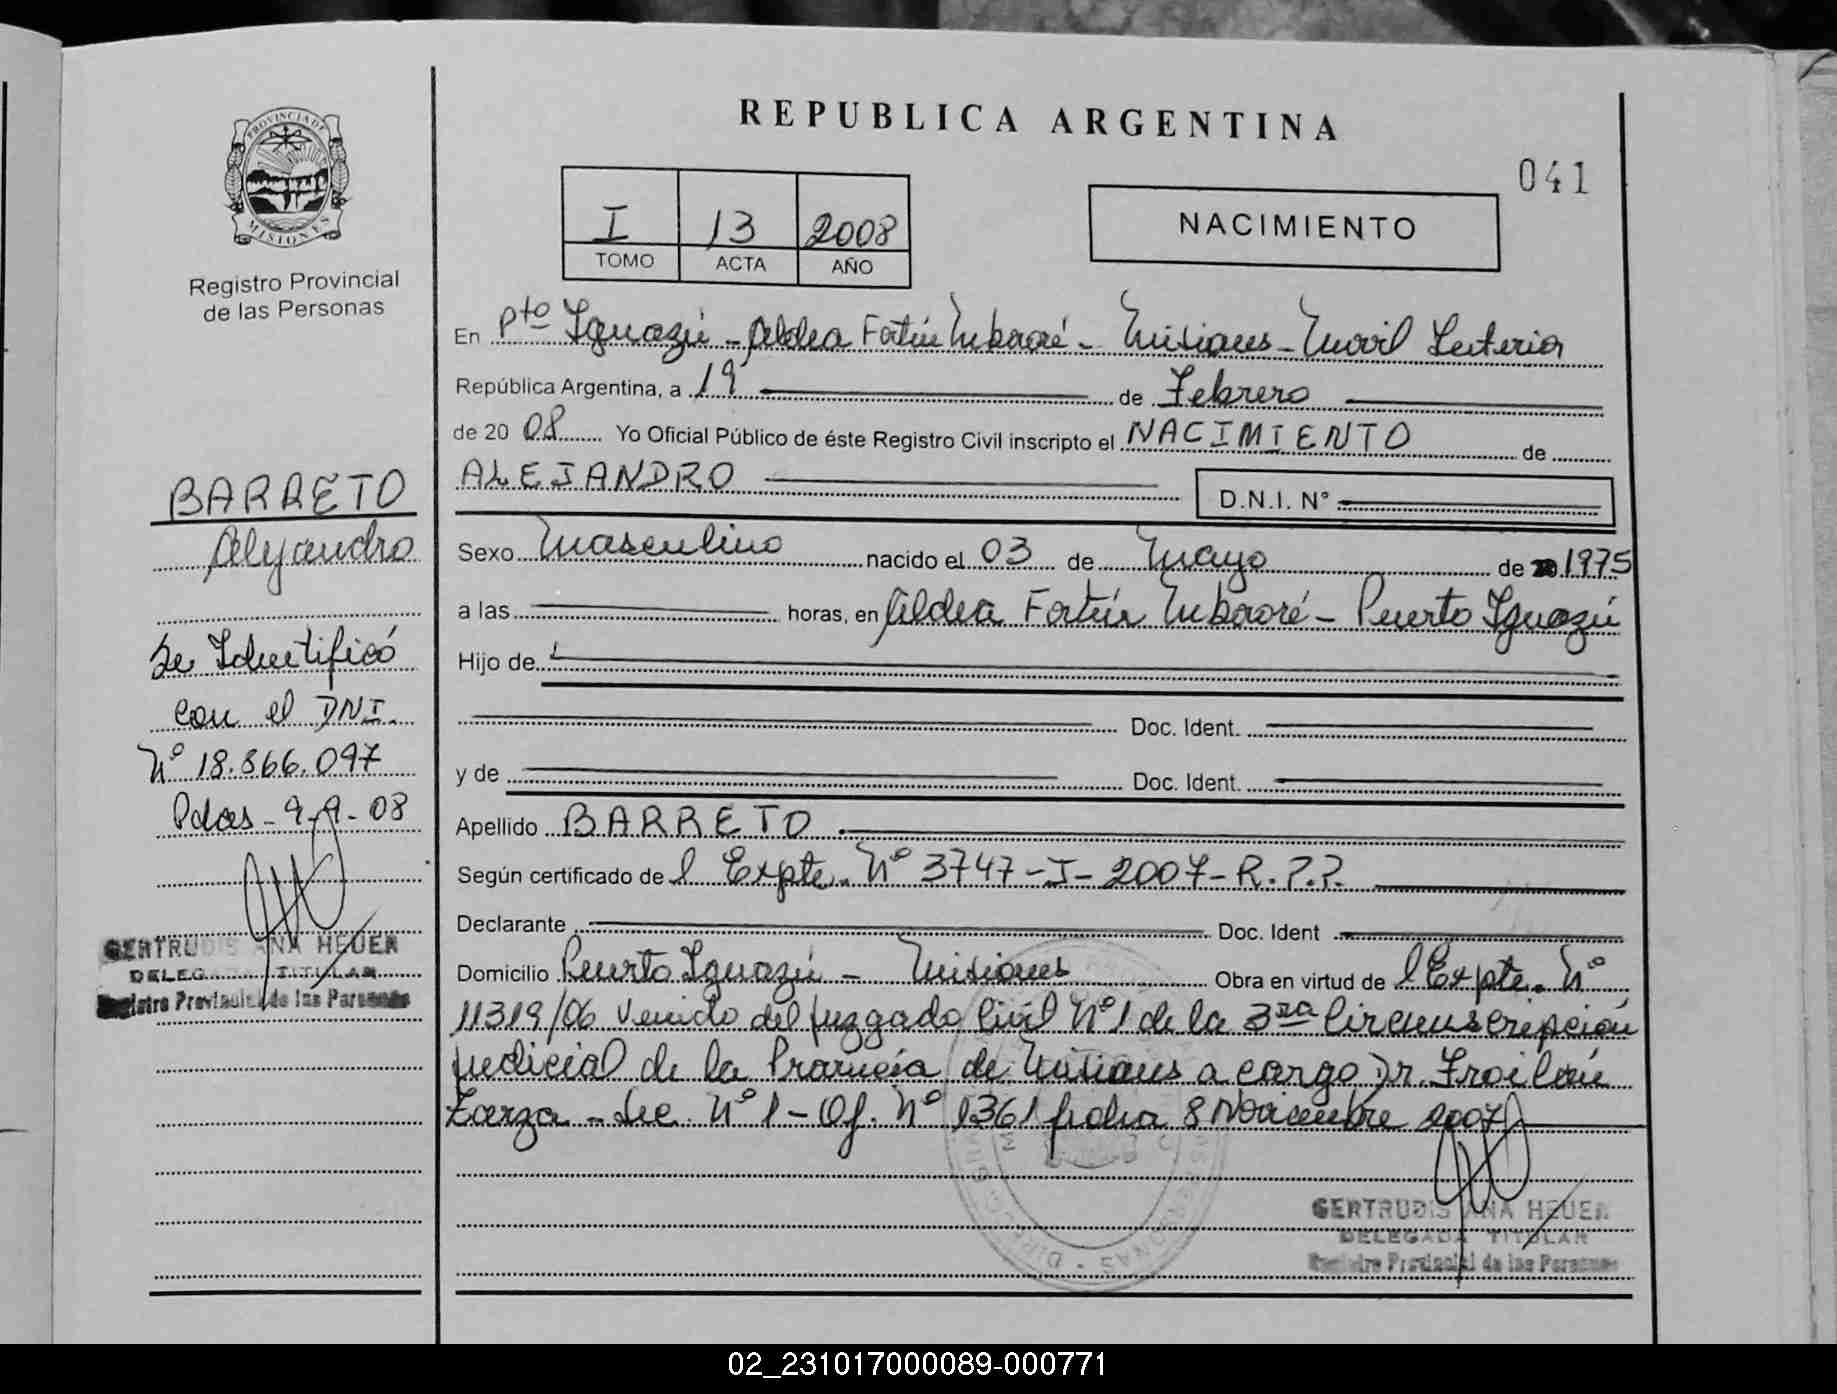 REPUBLICA ARGENTINA
041
PROVINCIA DE
MISIONES
Registro Provincial
de las Personas
I 13 2008
TOMO ACTA AÑO
NACIMIENTO
En Pto Iguazú - Aldea Fortín Mbororé - Misiones - Movil Interior
República Argentina, a 19 de Febrero
de 20 08 Yo Oficial Público de éste Registro Civil inscripto el NACIMIENTO de
ALEJANDRO D.N.I. N°
Sexo Masculino nacido el 03 de Mayo de 1975
a las horas, en Aldea Fortín Mbororé - Puerto Iguazú
Hijo de
Doc. Ident.
y de Doc. Ident.
Apellido BARRETO
Según certificado de l Expte. N° 3747-I-2007-R.P.P.
Declarante Doc. Ident
Domicilio Puerto Iguazú - Misiones Obra en virtud de l Expte. N°
11319/06 venido del juzgado Civil N° 1 de la 3ra Circunscripción
judicial de la Provincia de Misiones a cargo Dr. Froilán
Zarza - Sec. N° 1 - Of. N° 1361 fecha 8 Noviembre 2007
GERTRUDIS ANA HEUER
DELEGADA TITULAR
Registro Provincial de las Personas
BARRETO
Alejandro
Se Identificó
con el DNI.
N° 18.866.097
Pdas - 9-9-08
GERTRUDIS ANA HEUER
DELEG TITULAR
Registro Provincial de las Personas
02_231017000089-000771